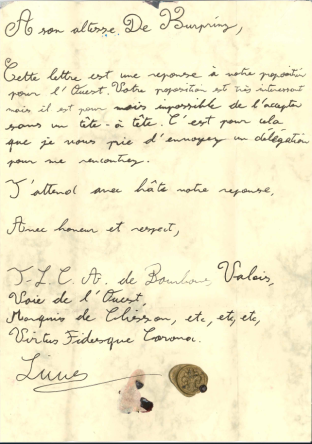 A son altesse De Burprinz,
Cette lettre est une reponse à votre proposition
pour l'Ouest. Votre proposition est très interessant
mais il est pour mois impossible de l'accepter
sans un tête-à tête. C'est pour cela
que je vous prie d'envoyez un délégation
pour me rencontrez.
J'attend avec hâte votre reponse,
Avec honeur et respect,
J-L.C.A. de Bourbons Valois,
Voie de l'Ouest,
Marquis de Clisson, etc, etc, etc,
Virtus Fidesque Corona.